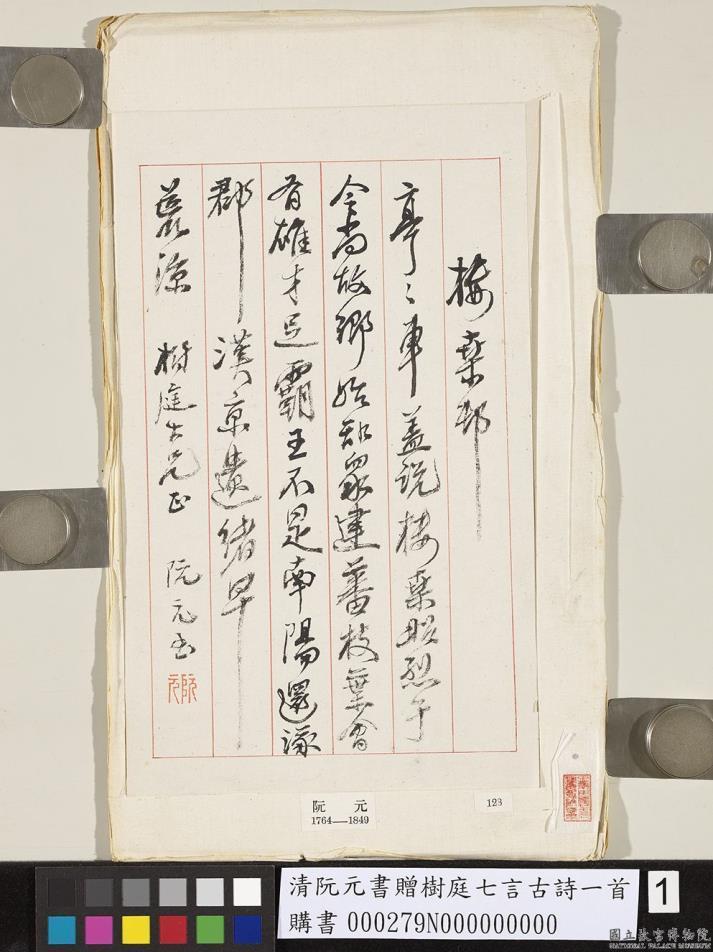 樓桑邨
亭〻車蓋說樓桑昭烈于
今尚故鄉始知眾建蕃枝葉會
有雄才足霸王不是南陽還涿
郡漢京遺緒早
荒涼 樹庭大兄正 阮元書
阮元
阮 元
1764—1849
123
清阮元書贈樹庭七言古詩一首
購書 000279N000000000
1
國立故宮博物院
NATIONAL PALACE MUSEUM